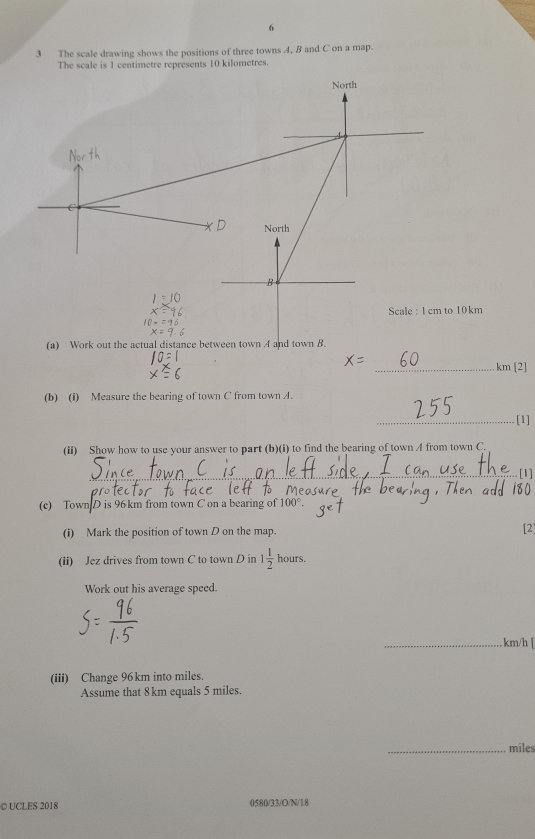 6
3 The scale drawing shows the positions of three towns A, B and C on a map.
The scale is 1 centimetre represents 10 kilometres.
North
A
North
C
D
North
B
1 = 10
x = 96
10x = 96
x = 9.6
Scale : 1 cm to 10 km
(a) Work out the actual distance between town A and town B.
10 = 1
x = 6
x = 60 km [2]
(b) (i) Measure the bearing of town C from town A.
255 [1]
(ii) Show how to use your answer to part (b)(i) to find the bearing of town A from town C.
Since town C is on left side, I can use the [1]
protector to face left to measure the bearing. Then add 180
get
(c) Town D is 96 km from town C on a bearing of 100°.
(i) Mark the position of town D on the map. [2]
(ii) Jez drives from town C to town D in 1 1/2 hours.
Work out his average speed.
S = 96/1.5
km/h [
(iii) Change 96 km into miles.
Assume that 8 km equals 5 miles.
miles
© UCLES 2018 0580/33/O/N/18